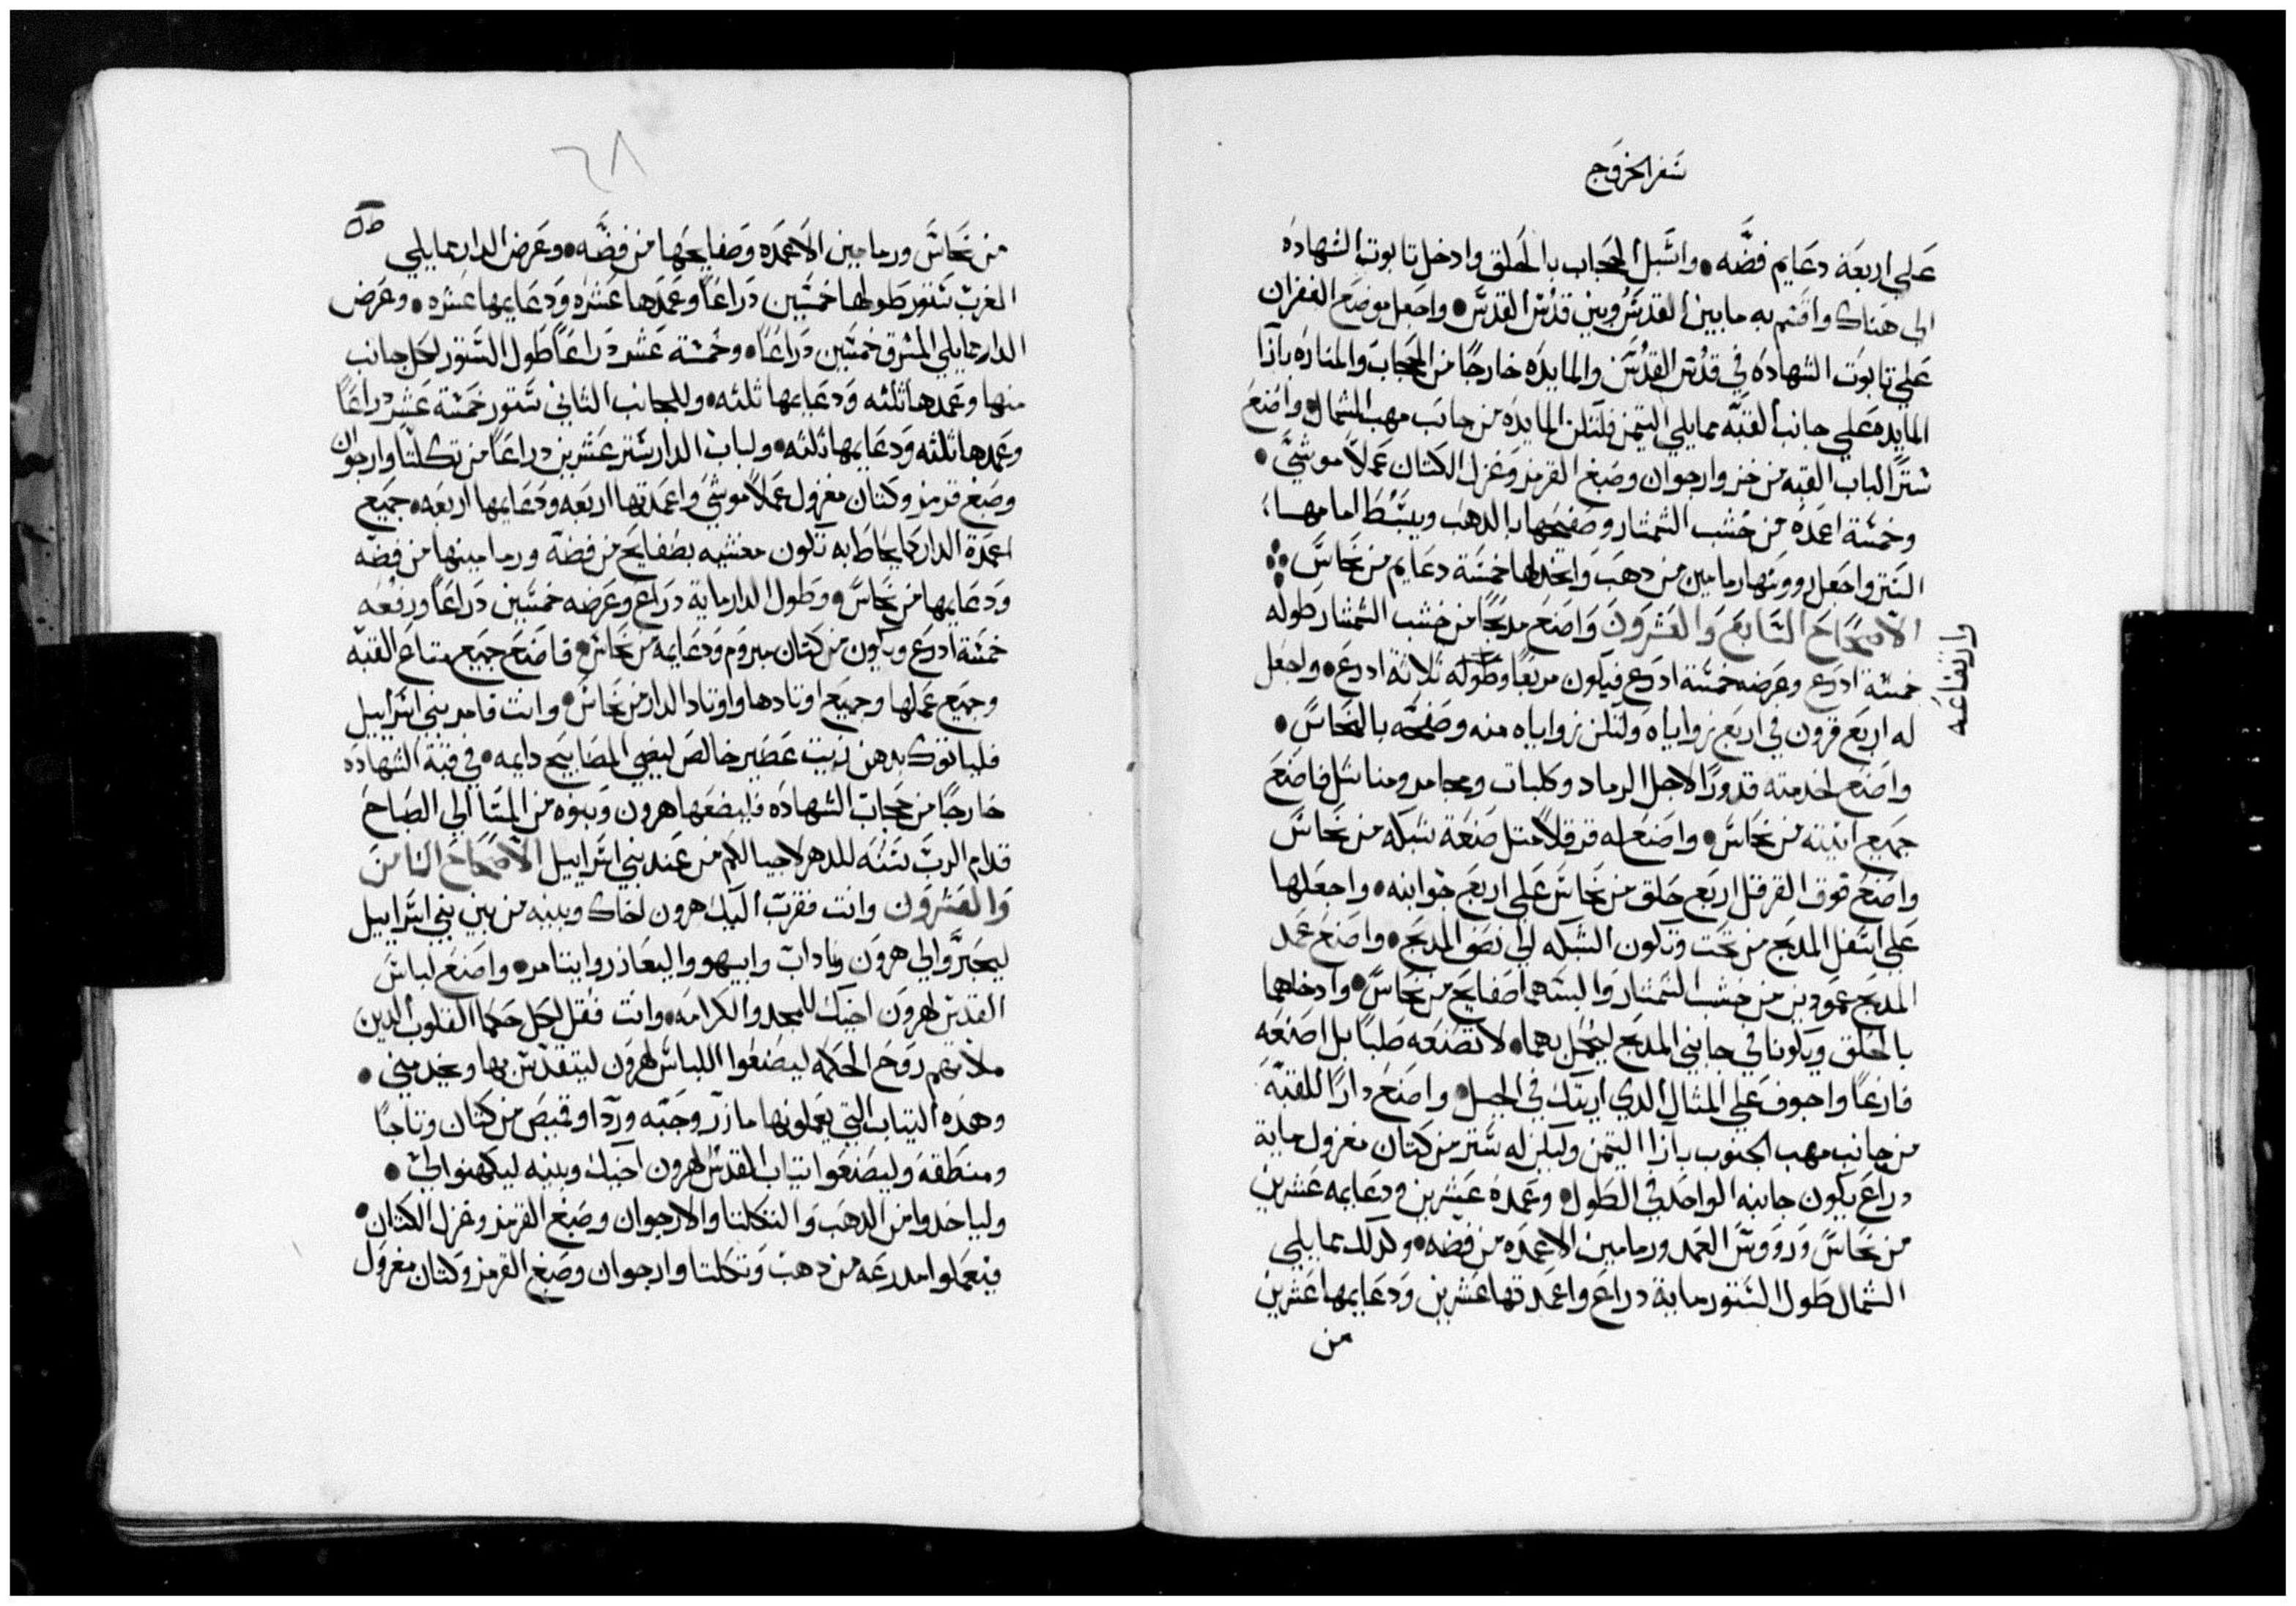 سفر الخروج
علي اربعة دعايم فضه • واسبل الحجاب بالحلق وادخل تابوت الشهاده
الي هناك واقسم به مابين القدس وبين قدس القدس • واجعل موضع الغفران
علي تابوت الشهاده في قدس القدس والمايده خارجًا من الحجاب والمناره بازآ
المايده علي جانب القبه مما يلي التيمن فلتكن المايده من جانب مهب الشمال واصنع
سترًا لباب القبه من خز وارجوان وصبغ القرمز وغزل الكتان عملاً موشي •
وخمسة اعمده من خشب الشمشار وصفحها بالدهب ويبسط امامها
الستر واجعل رووسها رمامين من دهب واتخد لها خمسة دعايم من نحاس
الاصحاح السابع والعشرون واصنع مدبحًا من خشب الشمشار طوله
خمسة ادرع وعرضه خمسة ادرع فيكون مربعًا وطوله ثلاثة ادرع • واجعل
وارتفاعه
له اربع قرون في اربع زواياه ولتكن زواياه منه وصفحه بالنحاس •
واصنع لخدمته قدورًا لاجل الرماد وكلبات ومجامر ومناشل فاصنع
جميع انيته من نحاس • واصنع له قرقلاً مثل صنعة شبكه من نحاس
واصنع فوق القرقل اربع حلق من نحاس علي اربع جوانبه • واجعلها
علي اسفل المدبح من تحت وتكون الشبكه الي نصف المدبح • واصنع عمد
المدبح عمودين من خشب الشمشار والبسهما صفايح من نحاس • وادخلهما
بالحلق ويكونا في جانبي المدبح ليحمل بهما • لا تصنعه صلبًا بل اصنعه
فارغًا واجوف علي المثال الدي اريتك في الجبل • واصنع دارًا للقبه
من جانب مهب الجنوب بازآ التيمن وليكن له ستر من كتان مغزول ماية
دراع يكون جانبه الواحد في الطول • وعمده عشرين ودعايمه عشرين
من نحاس ورووس العمد ورمامين الاعمده من فضه • وكدلك مما يلي
الشمال طول الستور ماية دراع واعمدتها عشرين ودعايمها عشرين
من
٦٨
من نحاس ورمامين الاعمده وصفايحها من فضه • وعرض الدار مما يلي
الغرب ستور طولها خمسين دراعًا وعمدها عشره ودعايمها عشره • وعرض
الدار مما يلي المشرق خمسين دراعًا • وخمسة عشر دراعًا طول الستور لكل جانب
منها وعمدها ثلثه ودعايمها ثلثه • وللجانب الثاني ستور خمسة عشر دراعًا
وعمدها ثلثه ودعايمها ثلثه • ولباب الدار ستر عشرين دراعًا من تكلتا وارجوان
وصبغ قرمز وكتان مغزول عملاً موشي واعمدتها اربعه ودعايمها اربعه • جميع
اعمدة الدار كما يحاط به تكون مغشيه بصفايح من فضه ورمامينها من فضه
ودعايمها من نحاس • وطول الدار ماية دراع وعرضه خمسين دراعًا ورفعه
خمسة ادرع ويكون من كتان مبروم ودعايمه من نحاس • فاصنع جميع متاع القبه
وجميع عملها وجميع اوتادها واوتاد الدار من نحاس • وانت فامر بني اسراييل
فلياتوك بدهن زيت عصير خالص ليضي المصابيح دايمه • في قبة الشهاده
خارجًا من حجاب الشهاده فليضعها هرون وبنوه من المسا الي الصباح
قدام الرب سنه للدهر لاجيالكم من عند بني اسراييل الاصحاح الثامن
والعشرون وانت فقرب اليك هرون اخاك وبنيه من بين بني اسراييل
ليحبروا لي هرون وناداب وابيهو واليعازر وايتامر • واصنع لباس
القدس لهرون اخيك للمجد والكرامه • وانت فقل لكل حكما القلوب الدين
ملاتهم روح الحكمه ليصنعوا اللباس لهرون ليتقدس بها ويخدمني •
وهده التياب التي يعملونها مازر وجبه وردا وقميص من كتان وتاجًا
ومنطقه وليصنعوا تياب القدس لهرون اخيك وبنيه ليكهنوا لي •
ولياخدوا من الدهب والتكلتا والارجوان وصبغ القرمز وغزل الكتان •
فيعملوا مدرعه من دهب وتكلتا وارجوان وصبغ القرمز وكتان مغزول